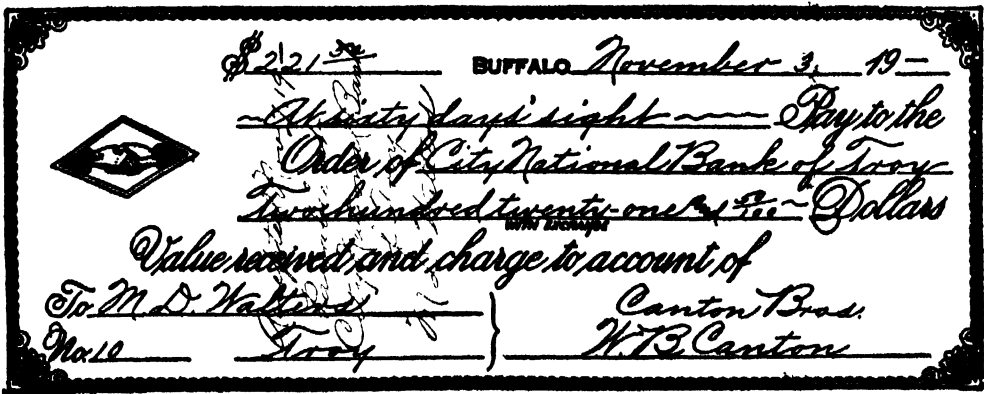 $ 221 BUFFALO November 3, 19—
At sixty days' sight Pay to the
Order of City National Bank of Troy
Two hundred twenty-one and /100 Dollars
WITH EXCHANGE
Value received and charge to account of
To M. D. Walters Canton Bros.
No. 10 Troy W. B. Canton